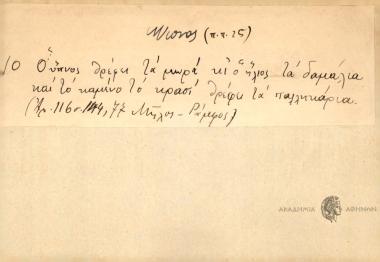 ὕπνος (π.π. 25)
10 Ὁ ὕπνος θρέφει τὰ μωρά κι' ὁ ἥλιος τὰ δαμάλια
καὶ τὸ καημένο τὸ κρασί θρέφει τὰ παλληκάρια.
(Λρ. 116 σ. 144, 77 Μῆλος -
ΑΚΑΔΗΜΙΑ ΑΘΗΝΩΝ